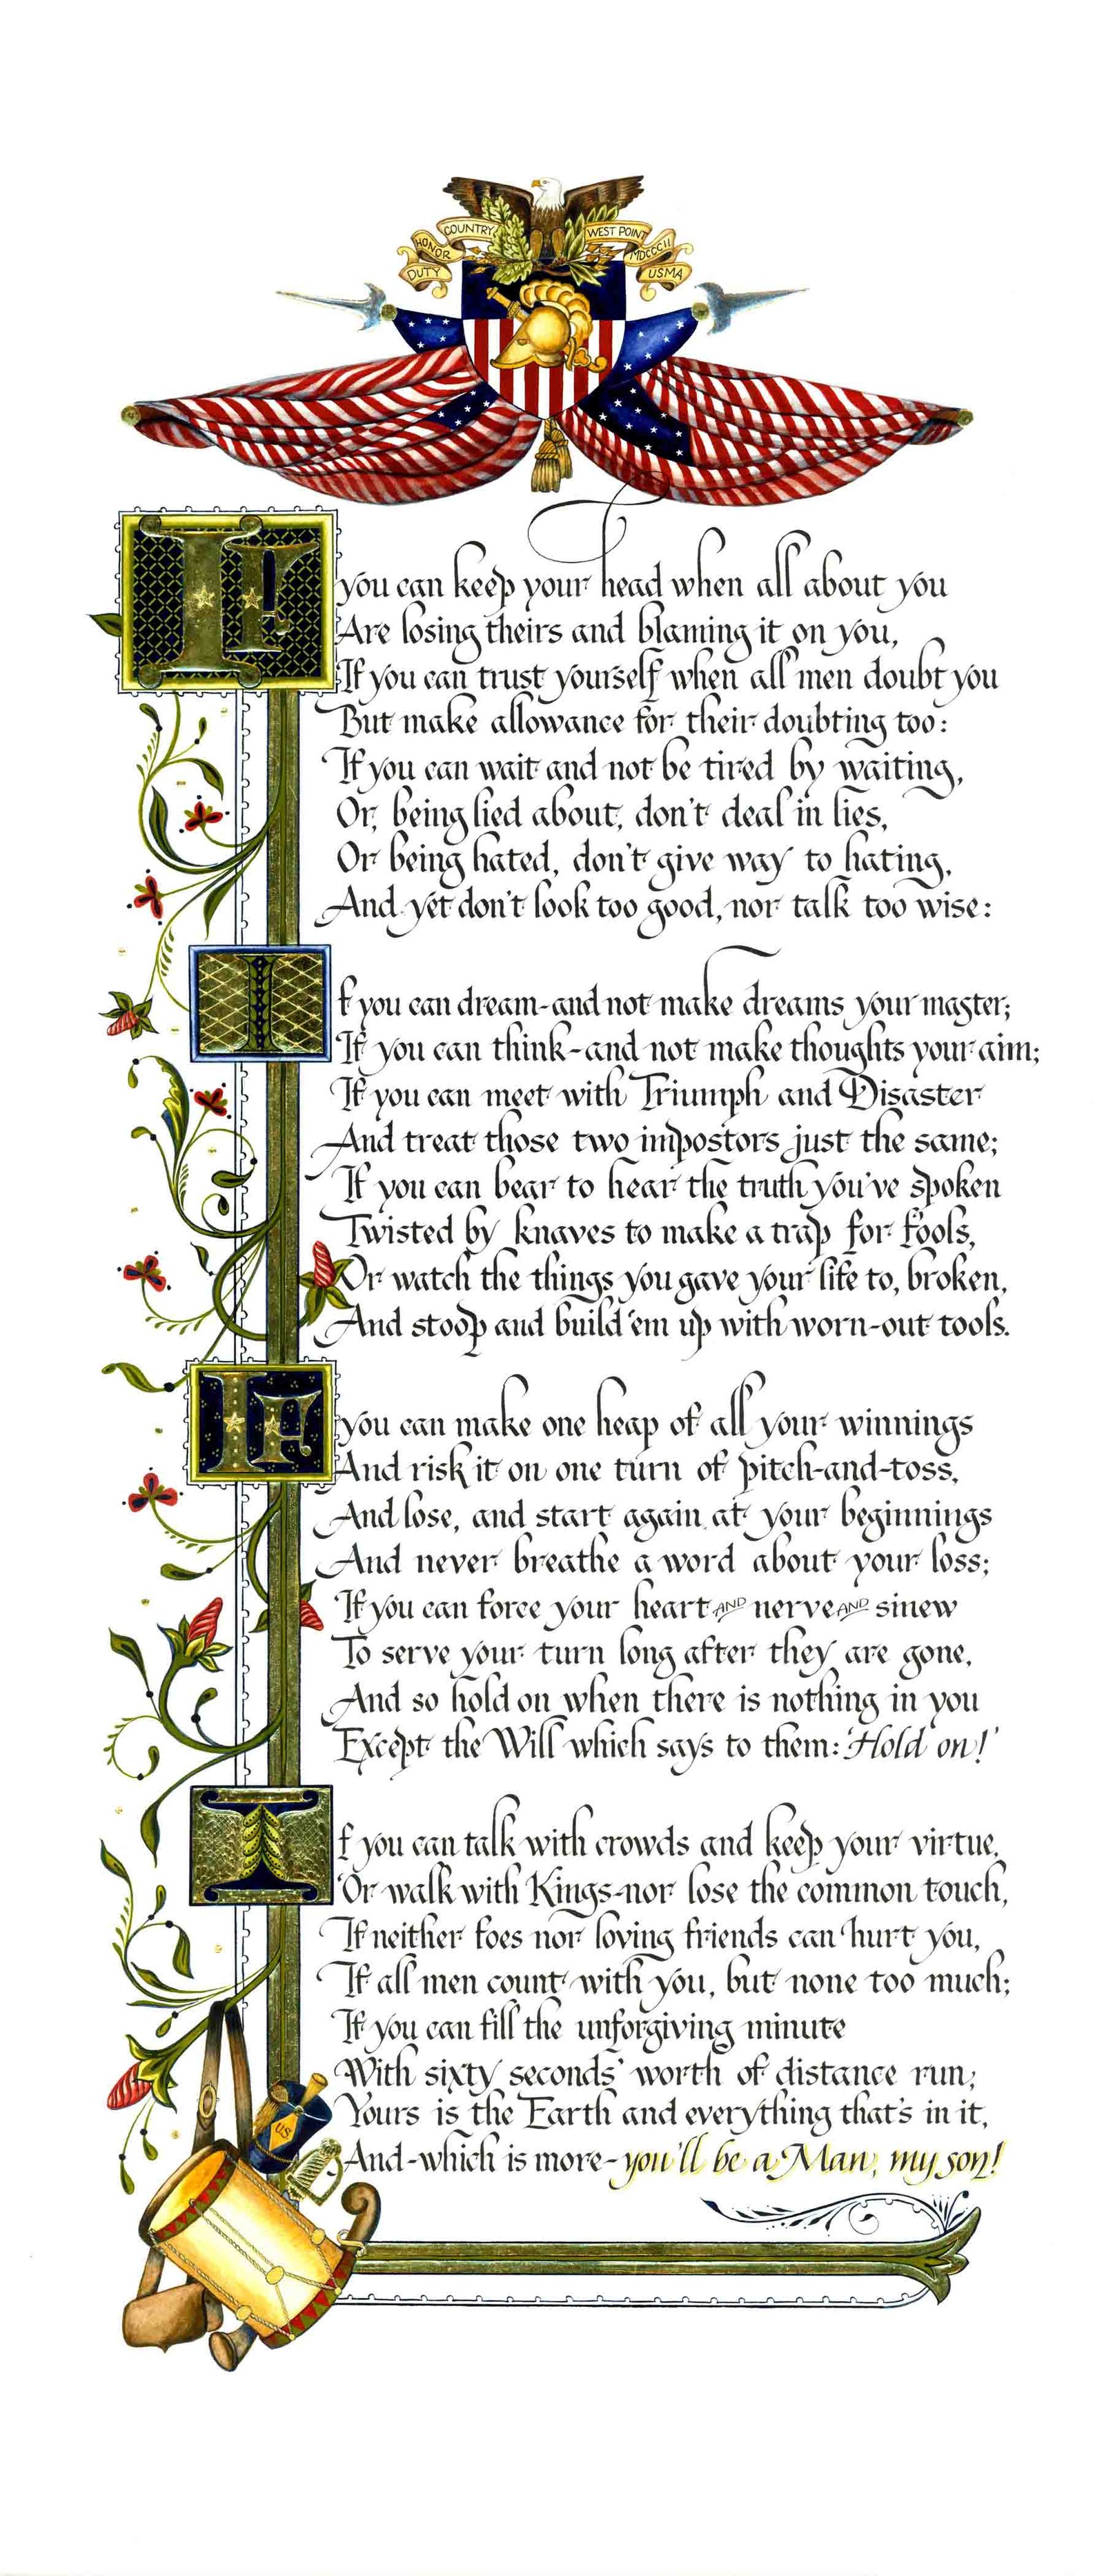 DUTY HONOR COUNTRY WEST POINT MDCCCII USMA
IF you can keep your head when all about you
Are losing theirs and blaming it on you,
If you can trust yourself when all men doubt you
But make allowance for their doubting too:
If you can wait and not be tired by waiting,
Or, being lied about, don't deal in lies,
Or being hated, don't give way to hating,
And yet don't look too good, nor talk too wise:
If you can dream-and not make dreams your master;
If you can think-and not make thoughts your aim;
If you can meet with Triumph and Disaster
And treat those two impostors just the same;
If you can bear to hear the truth you've spoken
Twisted by knaves to make a trap for fools,
Or watch the things you gave your life to, broken,
And stoop and build 'em up with worn-out tools.
IF you can make one heap of all your winnings
And risk it on one turn of pitch-and-toss,
And lose, and start again at your beginnings
And never breathe a word about your loss;
If you can force your heart AND nerve AND sinew
To serve your turn long after they are gone,
And so hold on when there is nothing in you
Except the Will which says to them: 'Hold on!'
If you can talk with crowds and keep your virtue,
Or walk with Kings-nor lose the common touch,
If neither foes nor loving friends can hurt you,
If all men count with you, but none too much;
If you can fill the unforgiving minute
With sixty seconds' worth of distance run;
Yours is the Earth and everything that's in it,
And-which is more-you'll be a Man, my son!
US